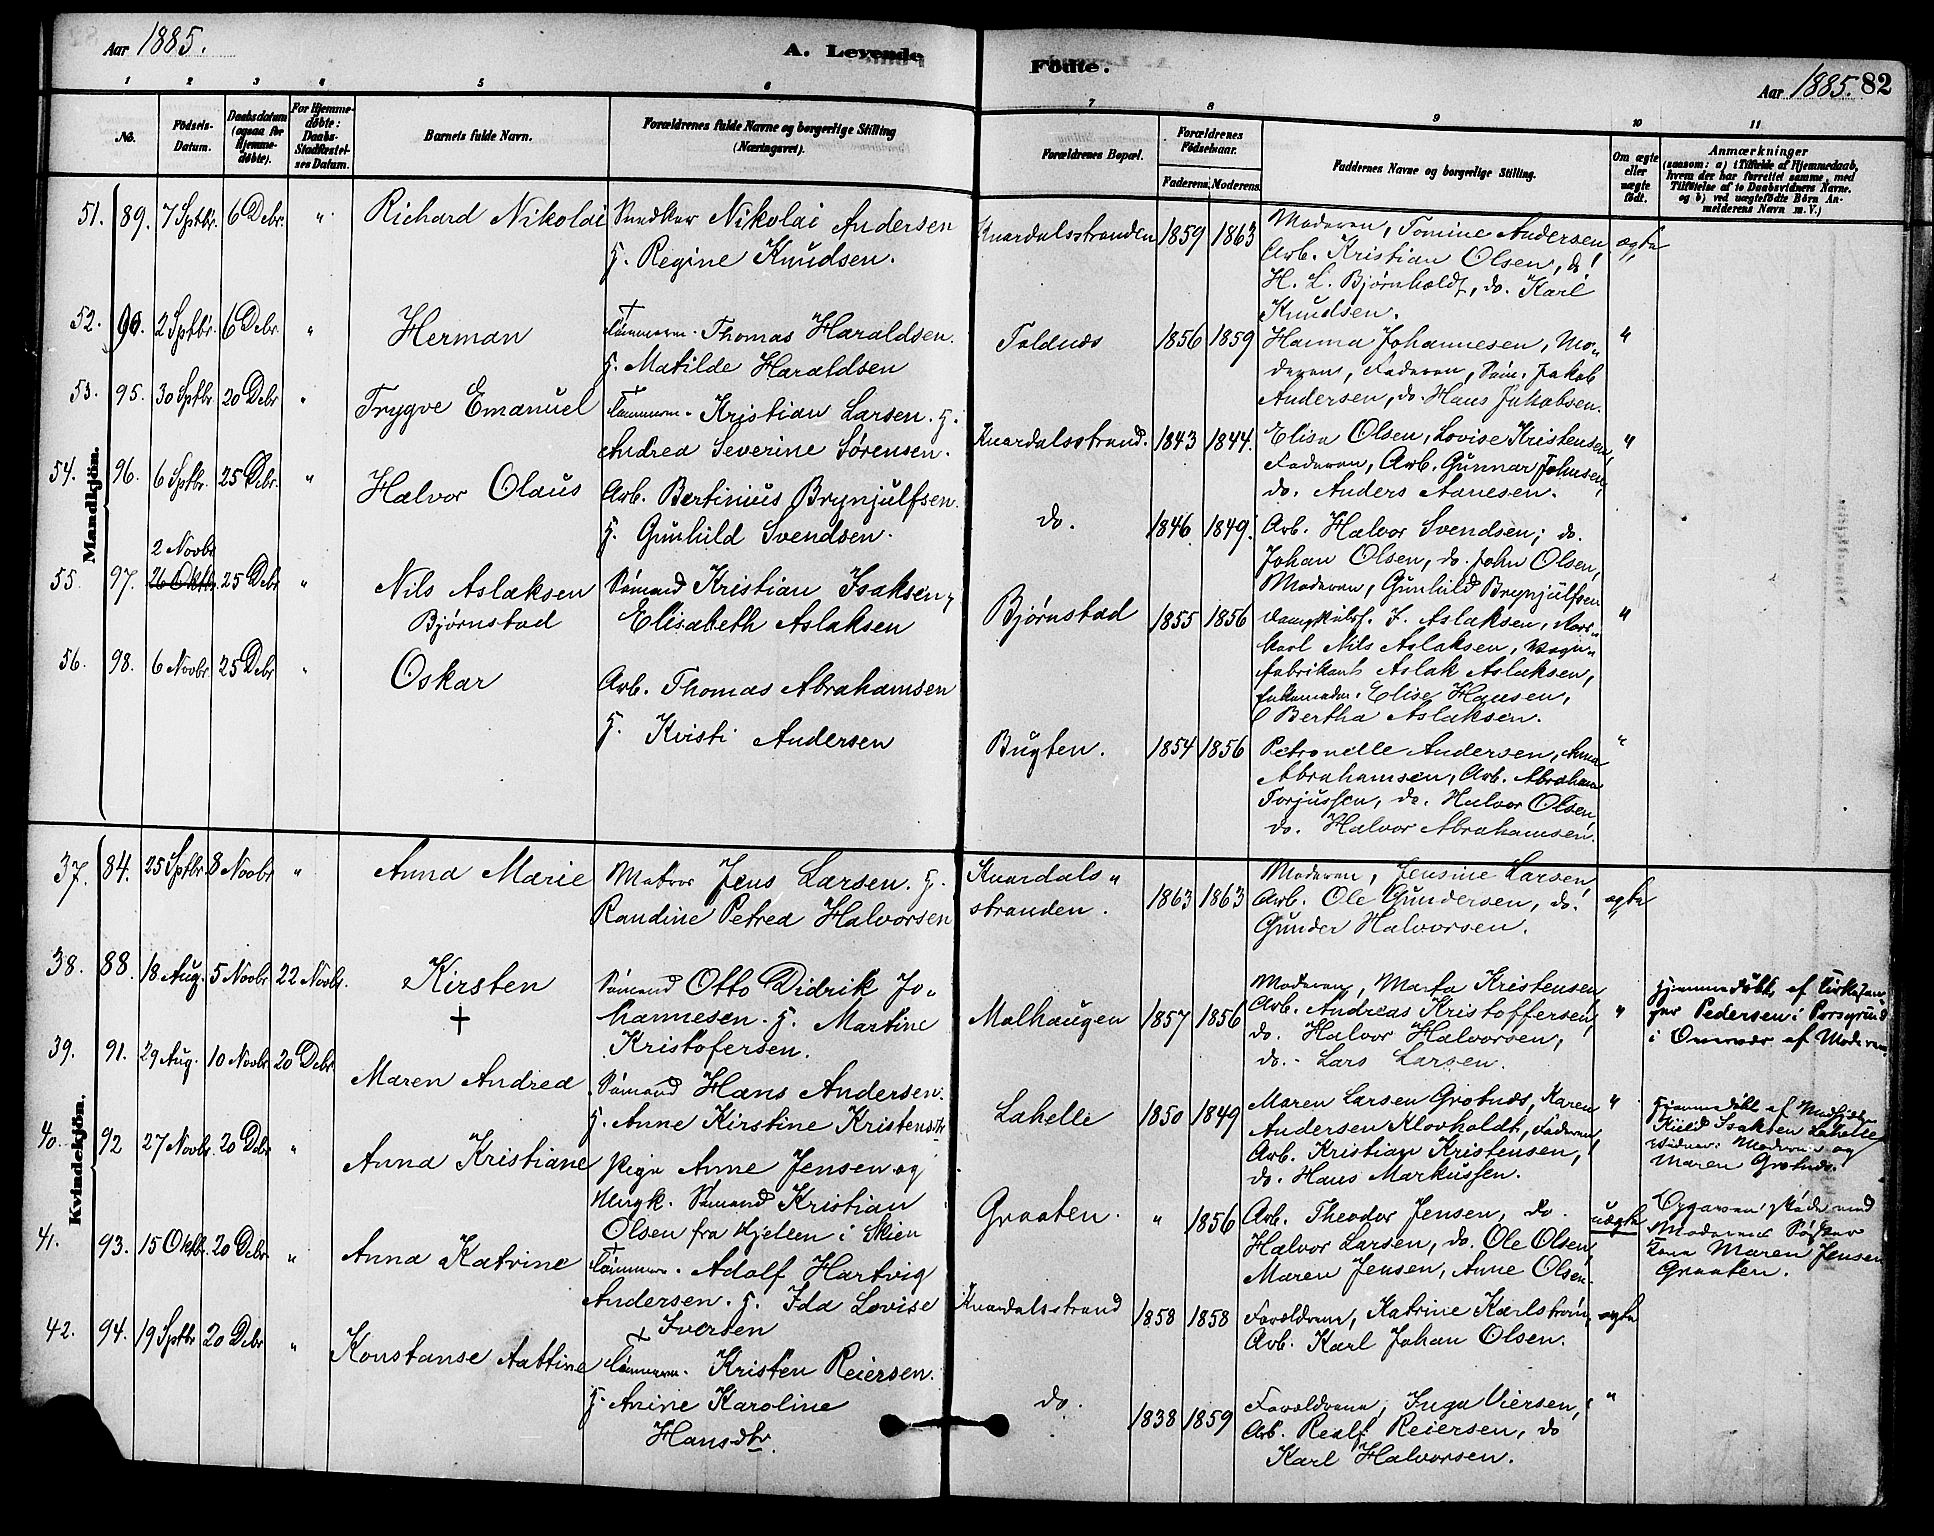 Aar 1885.
A. Levende Fødte.
Aar 1885. 82
1 2 3 4 5 6 7 8 9 10 11
No.
Fødsels-Datum.
Daabsdatum (ogsaa for Hjemmedøbte).
For Hjemmedøbte: Daabs-Stadfæstelses Datum.
Barnets fulde Navn.
Forældrenes fulde Navne og borgerlige Stilling (Næringsvei).
Forældrenes Bopæl.
Forældrenes Fødselsaar.
Faderens. Moderens.
Faddernes Navne og borgerlige Stilling.
Om ægte eller uægte født.
Anmærkninger
(saasom: a) i Tilfælde af Hjemmedaab,
hvem der har forrettet samme, med
Tilføielse af to Daabsvidners Navne.
og b) ved uægtefødte Børn Anmelderens Navn m. V.)
Mandkjøn.
51. 89. 7 Sptbr. 6 Debr. " Richard Nikolai
Snedker Nikolai Andersen
H. Regine Knudsen.
Knardalsstranden 1859 1863
Moderen, Tomine Andersen
Arb. Kristian Olsen, do.
H. L. Bjørnholdt, do. Karl
Knudsen.
ægte
52. 90. 2 Sptbr. 6 Debr. " Herman
Tømmerm. Thomas Haraldsen.
H. Matilde Haraldsen
Toldnæs 1856 1859
Hanna Johannesen, Mo-
deren, Faderen, Søm. Jakob
Andersen, do. Hans Jakobsen.
"
53. 95. 30 Sptbr. 20 Debr " Trygve Emanuel
Tømmerm. Kristian Larsen. H.
Andrea Severine Sørensen.
Knardalsstrand. 1843 1844.
Elise Olsen, Lovise Kristensen,
Faderen, Arb. Gunnar Johnsen,
do. Anders Aanesen.
"
54. 96. 6 Sptbr. 25 Debr. " Halvor Olaus
Arb. Bertinius Brynjulfsen.
H. Gunhild Svendsen.
do. 1846 1849.
Arb. Halvor Svendsen, do.
Johan Olsen, do. John Olsen,
Moderen, Gunhild Brynjulfsen
55. 97. 2 Novbr 26 Oktbr. 25 Debr " Nils Aslaksen
Bjørnstad
Sømand Kristian Isaksen,
Elisabeth Aslaksen
Bjørnstad 1855 1856
J. Aslaksen,
Nils Aslaksen, Vogn-
fabrikant Aslak Aslaksen,
Elise Hansen,
Bertha Aslaksen.
"
56. 98. 6 Novbr. 25 Debr " Oskar
Arb. Thomas Abrahamsen
H. Kirsti Andersen
Bugten. 1854 1856
Petronelle Andersen, Anna
Abrahamsen, Arb. Abraham
Torjussen, do. Halvor Olsen,
do. Halvor Abrahamsen.
"
Kvindekjøn.
37. 84. 25 Sptbr. 8 Novbr " Anna Marie
Matros Jens Larsen. H.
Randine Petrea Halvorsen
Knardals-
stranden. 1863 1863
Moderen, Jensine Larsen,
Arb. Ole Gundersen, do.
Gunder Halvorsen.
ægte
38. 88. 18 Aug. 5 Novbr 22 Novbr. Kirsten
+
Sømand Otto Didrik Jo-
hannesen. H. Martine
Kristofersen.
Malhaugen 1857 1856
Moderen, Marta Kristensen
Arb. Andreas Kristoffersen,
do. Halvor Halvorsen,
do. Lars Larsen.
"
Hjemmedøbt af Kirkesan-
ger Pedersen i Porsgrund
i Overvær af Moderen.
39. 91. 29 Aug. 10 Novbr 20 Debr Maren Andrea
Sømand Hans Andersen.
H. Anne Kirstine Kristensdtr
Lahelle 1850 1849
Maren Larsen Grotnæs, Karen
Andersen Klovholdt, Faderen,
Arb. Kristian Kristensen,
do. Hans Markussen.
"
Hjemmedøbt af
Isaksen Lahelle
Vidner: Moderen og
Maren Grotnæs.
40. 92 27 Novbr. 20 Debr " Anna Kristiane
Pige Anne Jensen og
Ungk. Sømand Kristian
Olsen fra Hjellen i Skien
Graaten. " 1856
Arb. Theodor Jensen, do.
Halvor Larsen, do. Ole Olsen,
Maren Jensen, Anne Olsen.
uægte
Opgaven skede ved
Moderens Søster
Kone Maren Jensen
Graaten.
41. 93. 15 Oktbr. 20 Debr " Anna Katrine
Tømmerm. Adolf Hartvig
Andersen. H. Ida Lovise
Iversen
Knardalsstrand 1858 1858
Forældrene, Katrine Karlstrøm,
Arb. Karl Johan Olsen.
ægte
42. 94. 19 Sptbr 20 Debr " Konstanse Aattine
Tømmerm. Kristen Reiersen.
H. Anine Karoline
Hansdtr.
do. 1838 1859
Forældrene, Inga Viersen,
Arb. Realf Reiersen, do
Karl Halvorsen.
"